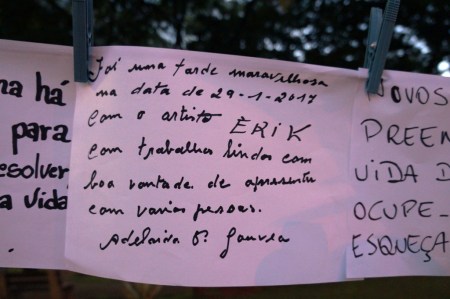 na há
para
esolver
a vida
Foi uma tarde maravilhosa
na data de 29-1-2017
com o artista ERIK
com trabalhos lindos com
boa vontade de apresentar
com varias pessoas.
Adelaiva P. Gouvea
NOVOS
PREEN
VIDA D
OCUPE-
ESQUEÇA